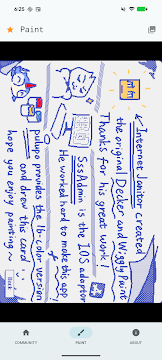 6:25
Paint
Internet Janitor created
the original Decker and WigglyPaint
Thanks for his great work!
SssAdmin is the IOS adaptor
He worked hard to make this app!
pulupo provides the 16-color version
and drew this card
hope you enjoy painting~
COMMUNITY
PAINT
ABOUT